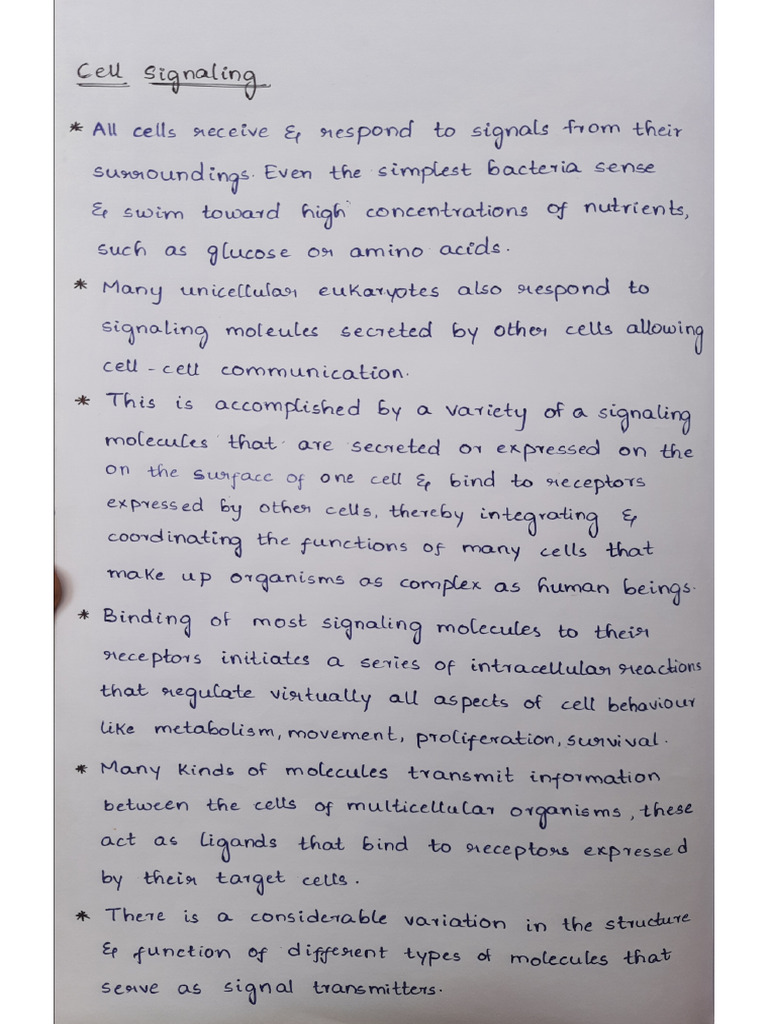 Cell Signaling
* All cells receive & respond to signals from their
surroundings. Even the simplest bacteria sense
& swim toward high concentrations of nutrients,
such as glucose or amino acids.
* Many unicellular eukaryotes also respond to
signaling moleules secreted by other cells allowing
cell - cell communication.
* This is accomplished by a variety of a signaling
molecules that are secreted or expressed on the
on the surface of one cell & bind to receptors
expressed by other cells, thereby integrating &
coordinating the functions of many cells that
make up organisms as complex as human beings.
* Binding of most signaling molecules to their
receptors initiates a series of intracellular reactions
that regulate virtually all aspects of cell behaviour
like metabolism, movement, proliferation, survival.
* Many kinds of molecules transmit information
between the cells of multicellular organisms, these
act as ligands that bind to receptors expressed
by their target cells.
* There is a considerable variation in the structure
& function of different types of molecules that
serve as signal transmitters.